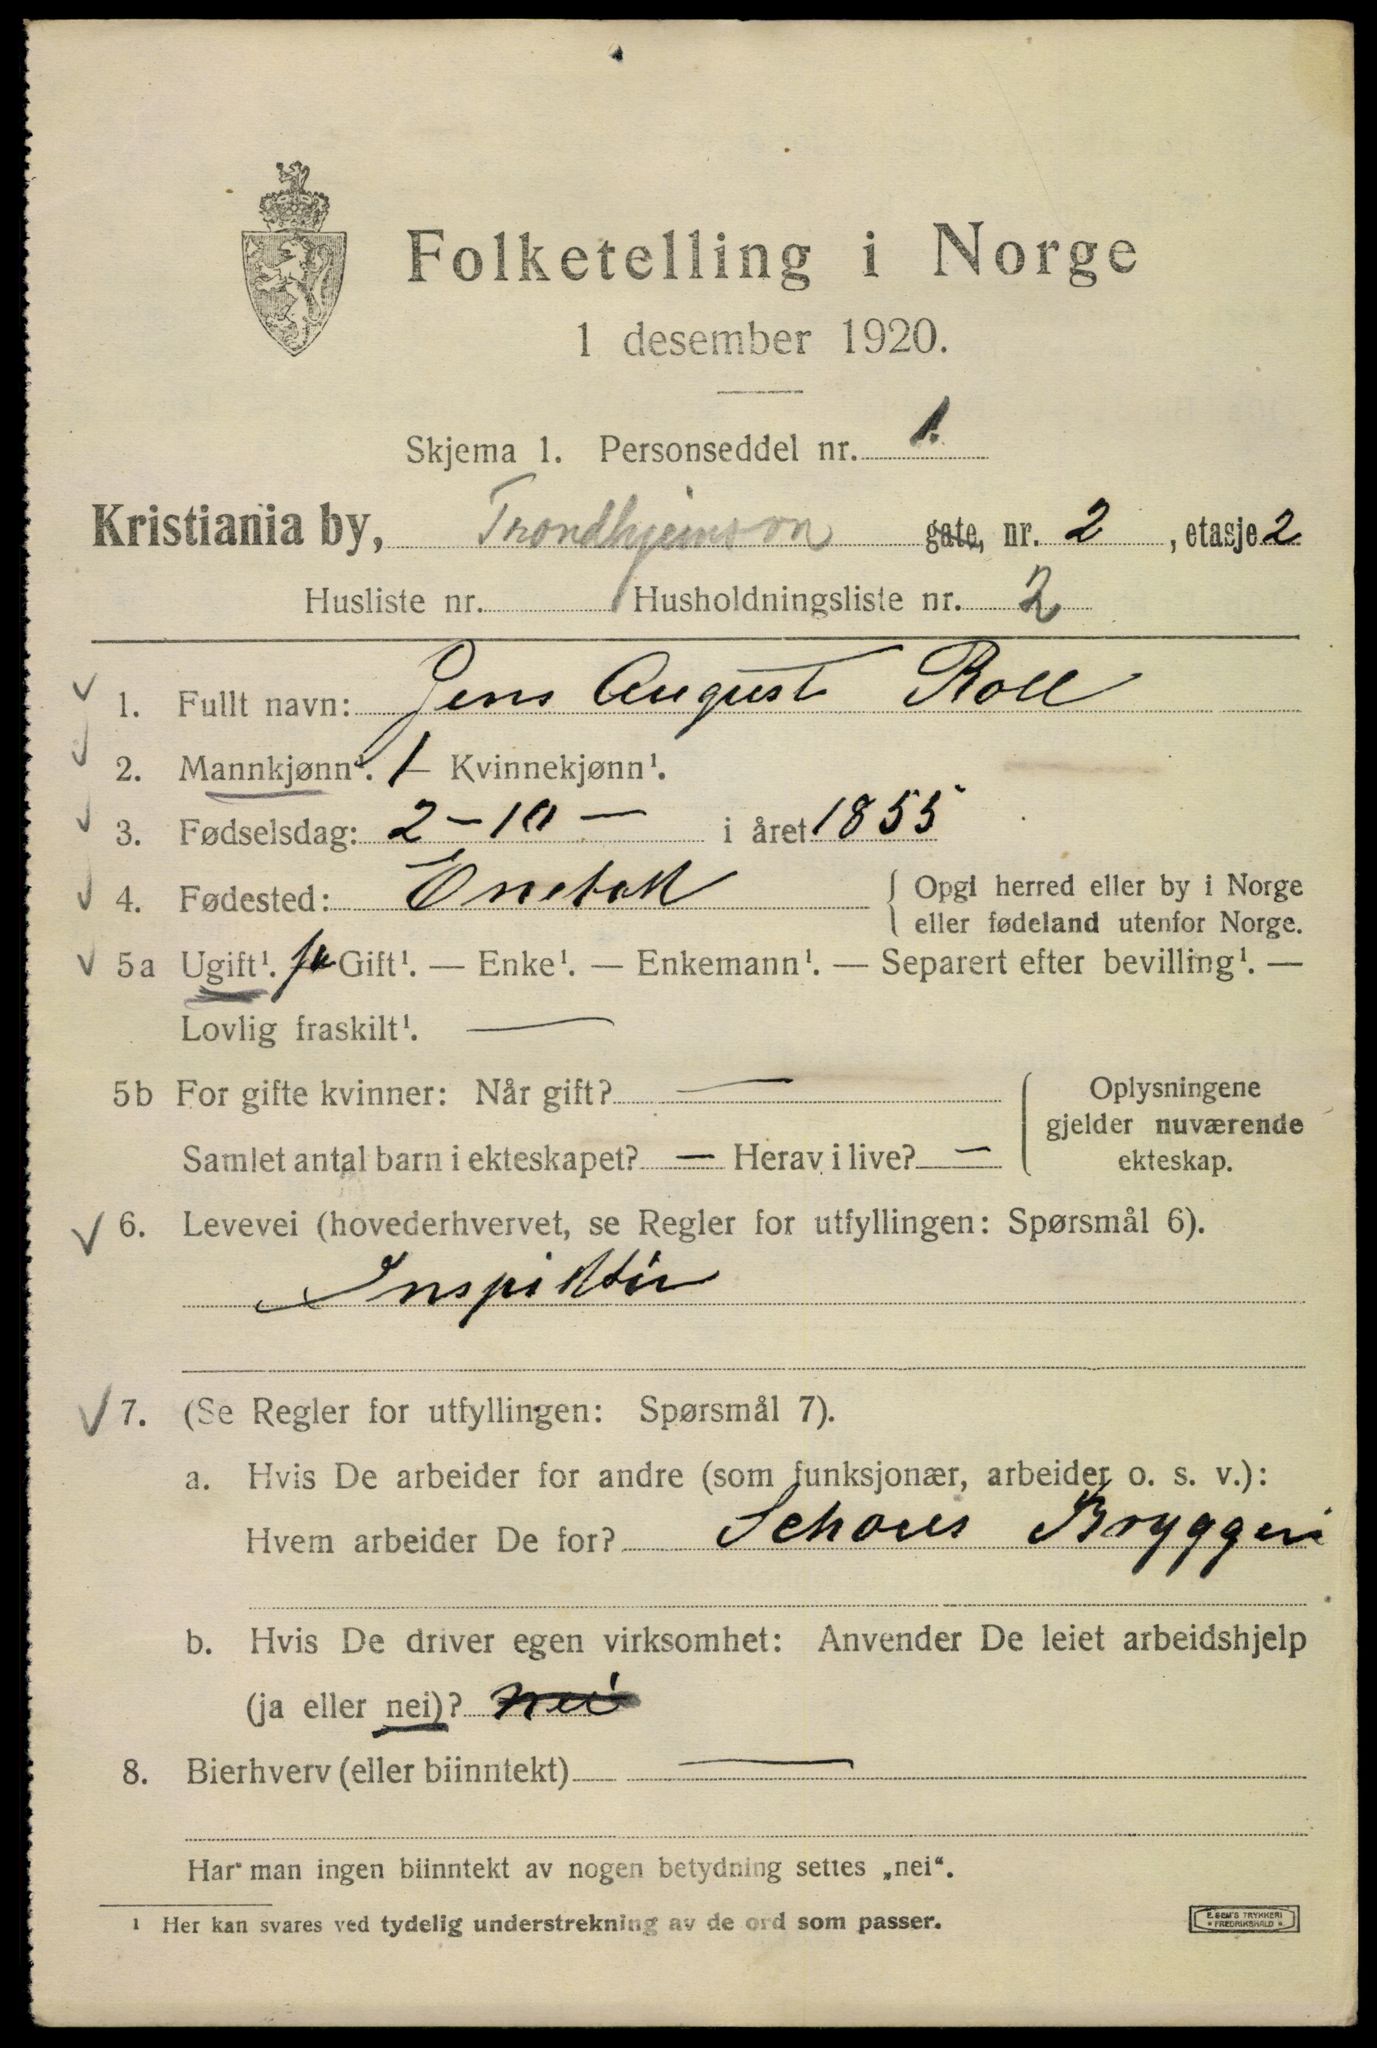 Folketelling i Norge
1 desember 1920.
Skjema 1. Personseddel nr. 1.
Kristiania by, Trondhjemsvn gate, nr. 2, etasje 2
Husliste nr. Husholdningsliste nr. 2
1. Fullt navn: Jens August Roll
2. Mannkjønn¹. 1 — Kvinnekjønn¹.
3. Fødselsdag: 2 - 10 — i året 1855
4. Fødested: Enebak { Opgi herred eller by i Norge
eller fødeland utenfor Norge.
5a Ugift¹. ja Gift¹. — Enke¹. — Enkemann¹. — Separert efter bevilling¹. —
Lovlig fraskilt¹. —
5b For gifte kvinner: Når gift? — Oplysningene
gjelder nuværende
Samlet antal barn i ekteskapet? — Herav i live? — ekteskap.
6. Levevei (hovederhvervet, se Regler for utfyllingen: Spørsmål 6).
Inspektør
7. (Se Regler for utfyllingen: Spørsmål 7).
a. Hvis De arbeider for andre (som funksjonær, arbeider o. s. v.):
Hvem arbeider De for? Schous Bryggeri
b. Hvis De driver egen virksomhet: Anvender De leiet arbeidshjelp
(ja eller nei)? nei
8. Bierhverv (eller biinntekt) —
Har man ingen biinntekt av nogen betydning settes „nei“.
¹ Her kan svares ved tydelig understrekning av de ord som passer.
E. SEM'S TRYKKERI
* FREDRIKSHALD *